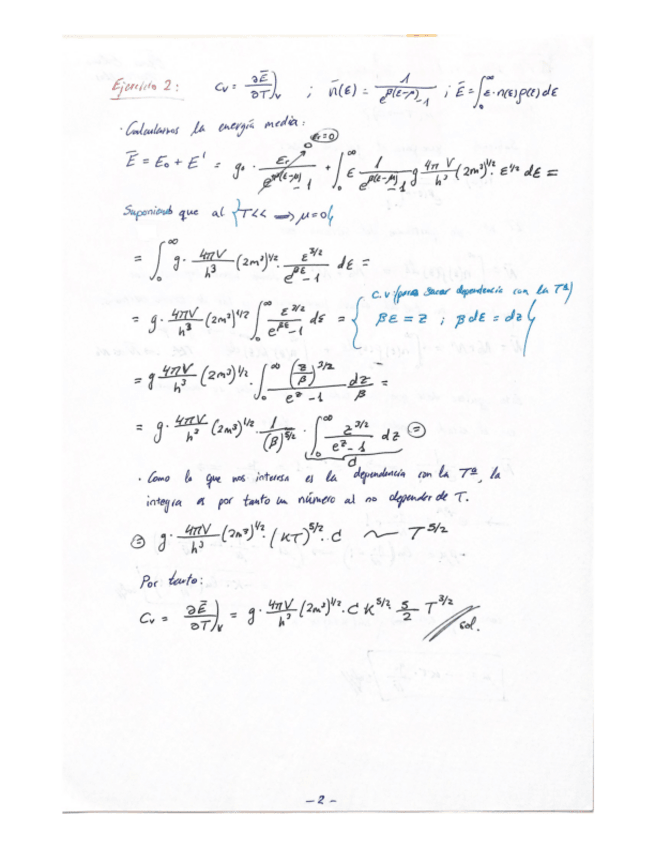 Ejercicio 2: Cv = ∂Ē/∂T)v ; n̄(ε) = 1/(e^{β(ε-μ)} - 1) ; Ē = ∫₀^∞ ε·n(ε)ρ(ε)dε
· Calculamos la energía media:
εr=0
Ē = E₀ + E' = g₀ · εr/(e^{β(ε-μ)} - 1) + ∫₀^∞ ε 1/(e^{β(ε-μ)} - 1) g 4πV/h³ (2m³)^{1/2} · ε^{1/2} dε =
Suponiendo que al {T<< ⟹ μ=0}
= ∫₀^∞ g · 4πV/h³ (2m³)^{1/2} · ε^{3/2}/(e^{βε} - 1) dε =
c.v (para sacar dependencia con la Tª)
= g · 4πV/h³ (2m³)^{1/2} ∫₀^∞ ε^{3/2}/(e^{βε} - 1) dε = { βε = z ; β dε = dz }
= g 4πV/h³ (2m³)^{1/2} · ∫₀^∞ (z/β)^{3/2}/(e^z - 1) dz/β =
= g · 4πV/h³ (2m³)^{1/2} · 1/(β)^{5/2} · ∫₀^∞ z^{3/2}/(e^z - 1) dz =
· Como lo que nos interesa es la dependencia con la Tª, la
integra es por tanto un número al no depender de T.
= g · 4πV/h³ (2m³)^{1/2} · (KT)^{5/2} · C ~ T^{5/2}
Por tanto:
Cv = ∂Ē/∂T)v = g · 4πV/h³ (2m³)^{1/2} · C K^{5/2} · 5/2 T^{3/2} // sol.
- 2 -